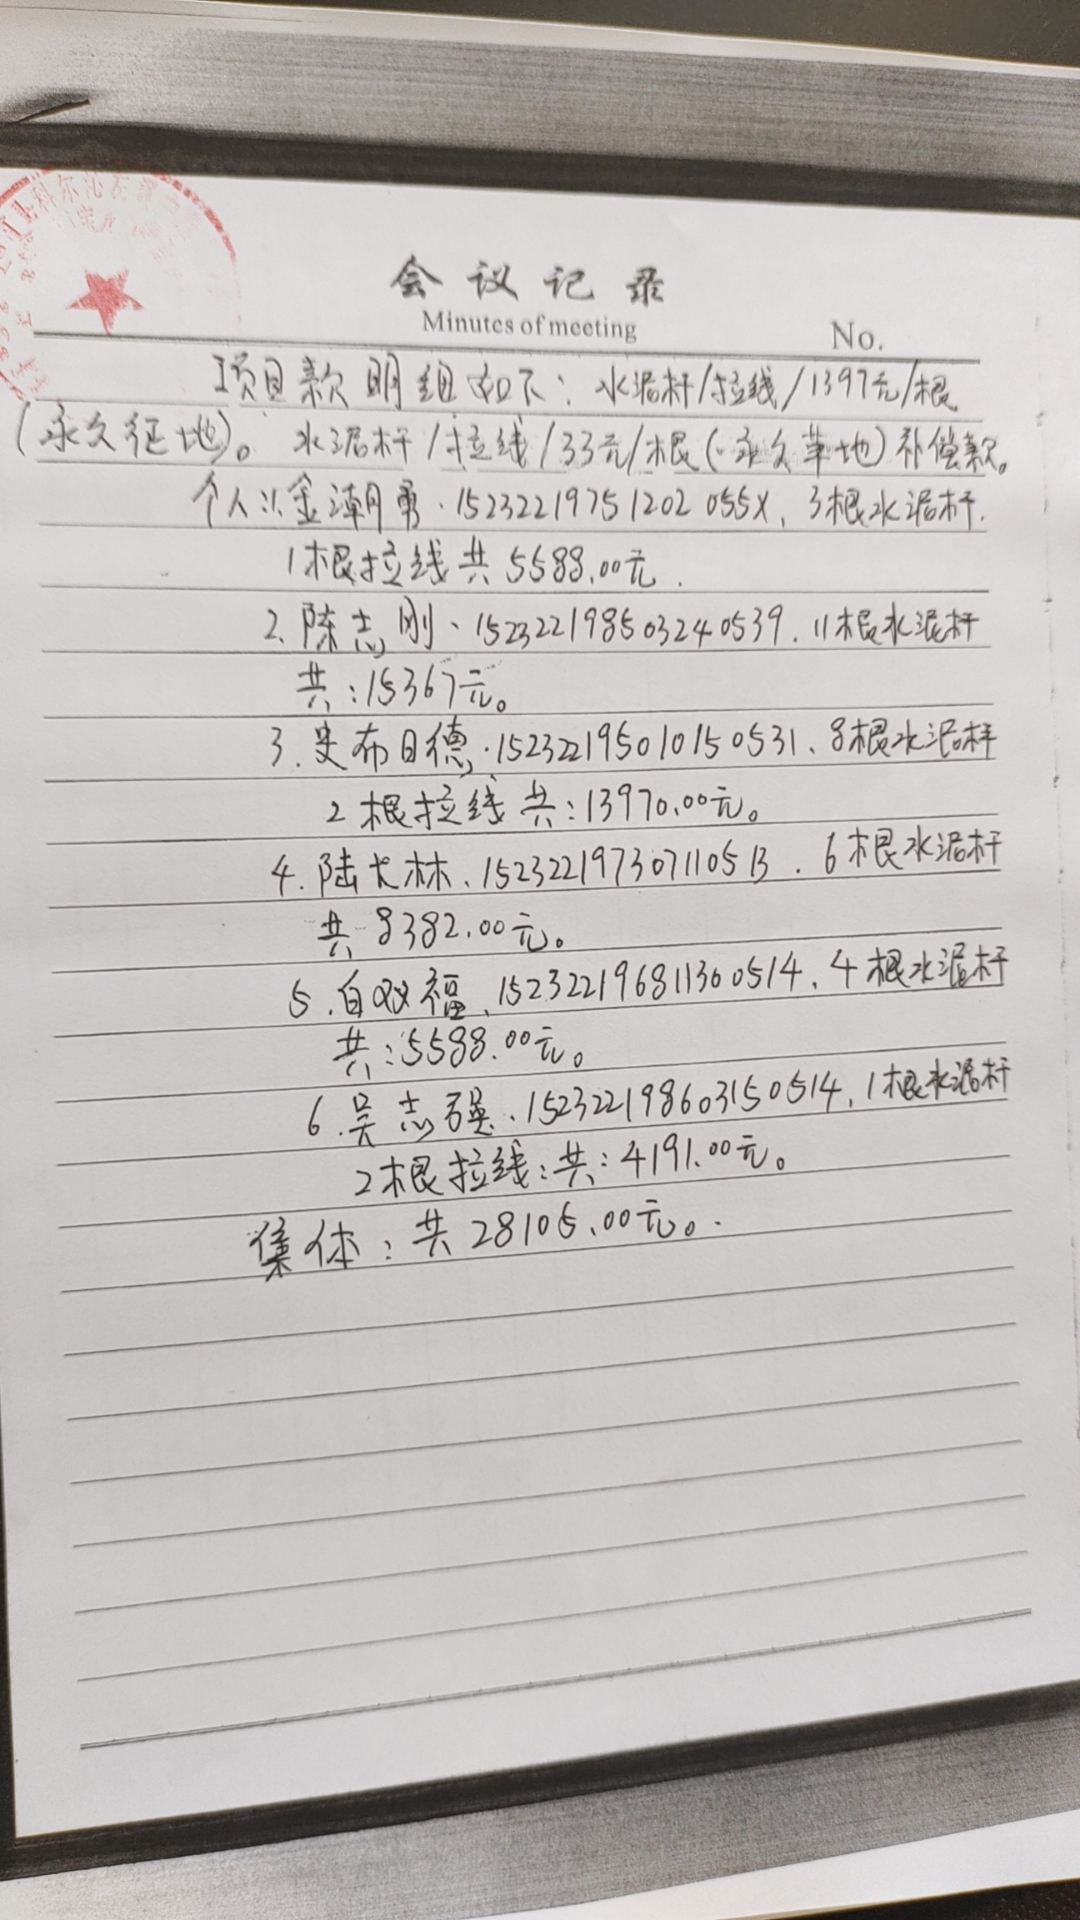 会议记录
Minutes of meeting
No.
项目款明细如下：水泥杆/拉线/1397元/根
（永久征地）。水泥杆/拉线/33元/根（永久草地）补偿款。
个人：1.金潮勇·15232219751202055X、3根水泥杆.
1根拉线共5588.00元.
2、陈志刚、152322198503240539、11根水泥杆
共：15367元。
3.史布日德·152322195010150531、8根水泥杆
2根拉线共：13970.00元。
4.陆长林、152322197307110513、6根水泥杆
共8382.00元。
5.白双福、152322196811300514、4根水泥杆
共：5588.00元。
6.吴志强·152322198603150514、1根水泥杆
2根拉线：共：4191.00元。
集体：共28105.00元。